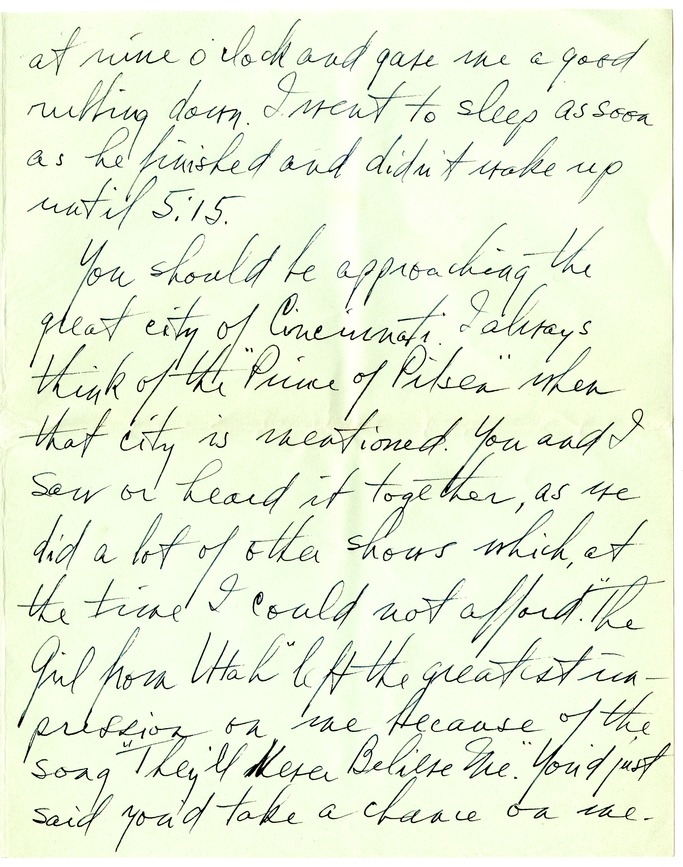 at nine o'clock and gave me a good
rubbing down. I went to sleep as soon
as he finished and didn't wake up
until 5:15.
You should be approaching the
great city of Cincinnati. I always
think of the "Prince of Pilsen" when
that city is mentioned. You and I
saw or heard it together, as we
did a lot of other shows which, at
the time I could not afford. "The
Girl from Utah" left the greatest im-
pression on me because of the
song "They'll Never Believe Me." You'd just
said you'd take a chance on me.